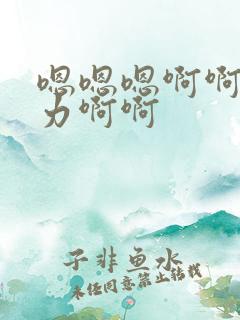 嗯嗯嗯啊啊
力啊啊
子非鱼水
未经同意禁止转载